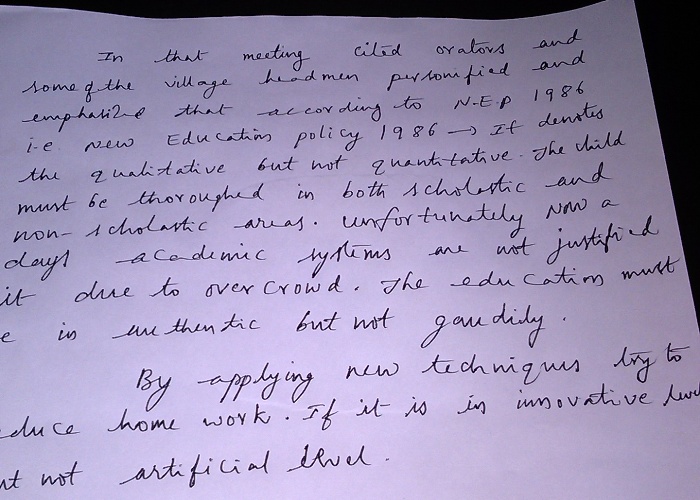 In that meeting cited orators and
some of the village headmen personified and
emphasize that according to N.E.P 1986
i-e new Education policy 1986 → It denotes
the qualitative but not quantitative. The child
must be thoroughed in both scholastic and
non-scholastic areas. Unfortunately Now a
days academic systems are not justified
it due to over crowd. The education must
e in authentic but not gaudily.
By applying new techniques try to
educe home work. If it is in innovative leve
ut not artificial level.